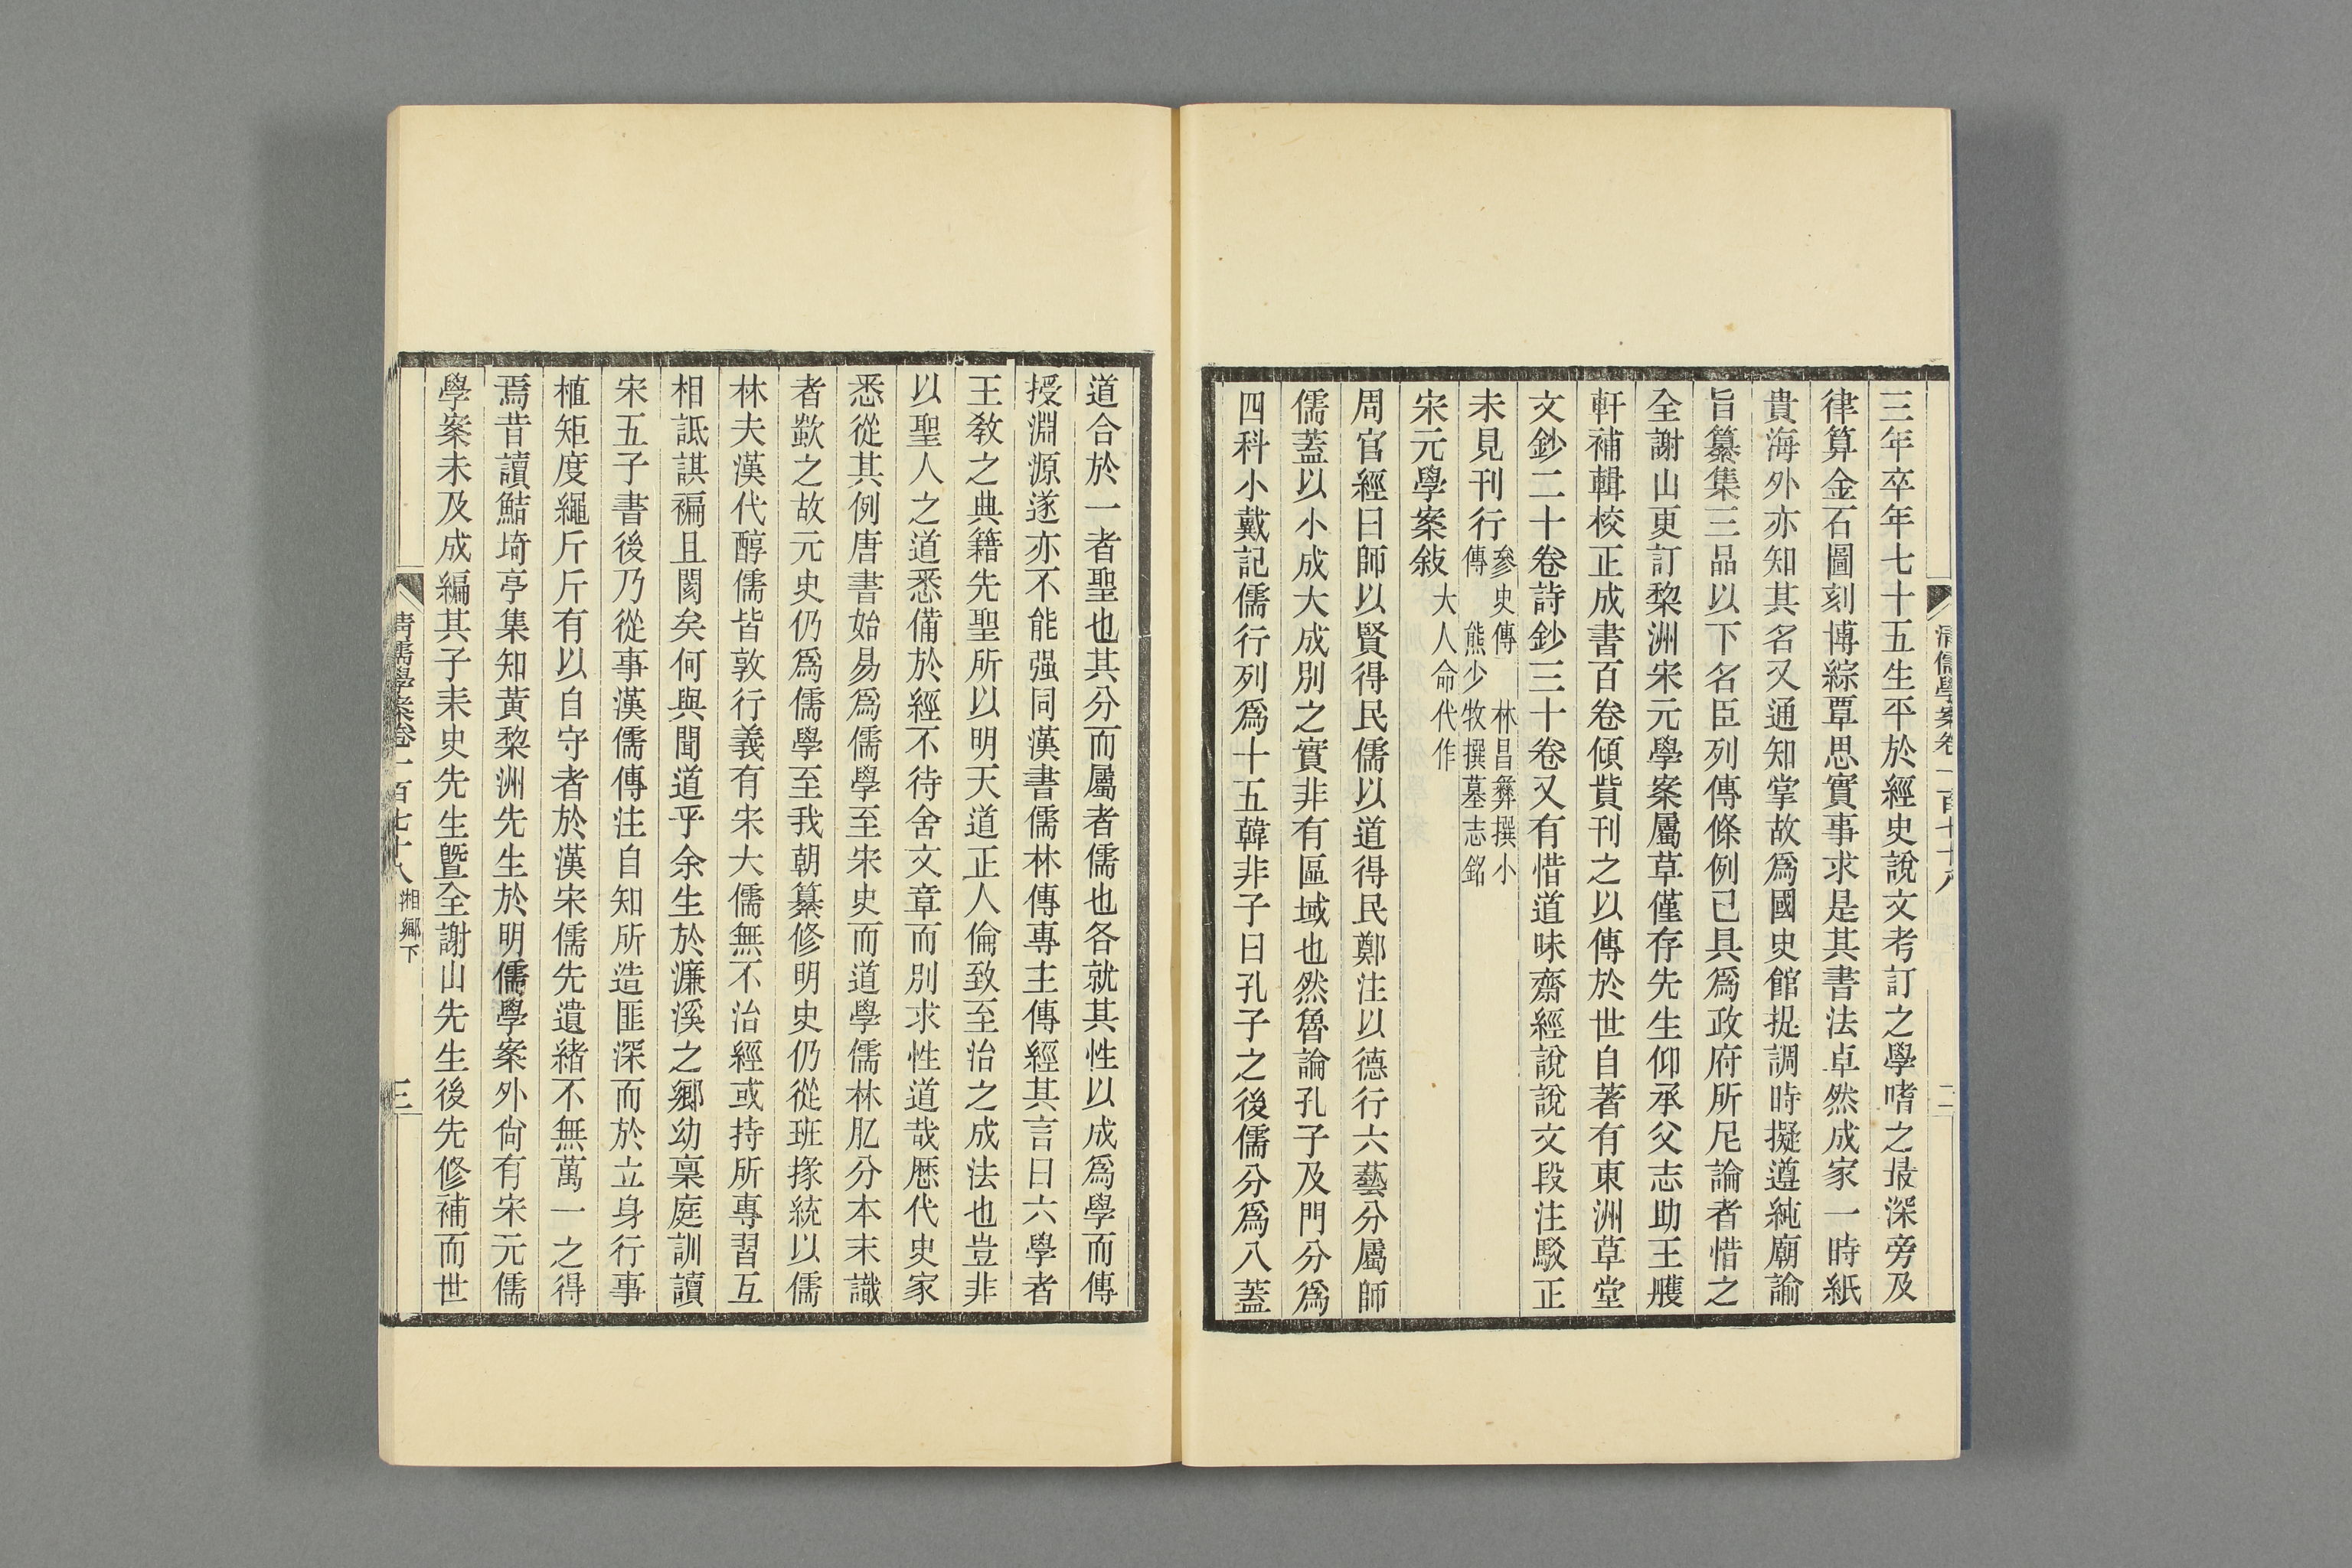 清儒學案卷一百七十八
二
三年卒年七十五生平於經史說文考訂之學嗜之最深旁及
律算金石圖刻博綜覃思實事求是其書法卓然成家一時紙
貴海外亦知其名又通知掌故爲國史館提調時擬遵純廟諭
旨纂集三品以下名臣列傳條例已具爲政府所尼論者惜之
全謝山更訂黎洲宋元學案屬草僅存先生仰承父志助王雘
軒補輯校正成書百卷傾貲刊之以傳於世自著有東洲草堂
文鈔二十卷詩鈔三十卷又有惜道味齋經說說文段注駁正
未見刊行
參史傳 林昌彝撰小
傳 熊少牧撰墓志銘
宋元學案敍
大人命代作
周官經曰師以賢得民儒以道得民鄭注以德行六藝分屬師
儒蓋以小成大成別之實非有區域也然魯論孔子及門分爲
四科小戴記儒行列爲十五韓非子曰孔子之後儒分爲八蓋
道合於一者聖也其分而屬者儒也各就其性以成爲學而傳
授淵源遂亦不能强同漢書儒林傳專主傳經其言曰六學者
王敎之典籍先聖所以明天道正人倫致至治之成法也豈非
以聖人之道悉備於經不待舍文章而別求性道哉歷代史家
悉從其例唐書始易爲儒學至宋史而道學儒林乢分本末識
者歎之故元史仍爲儒學至我朝纂修明史仍從班掾統以儒
林夫漢代醇儒皆敦行義有宋大儒無不治經或持所專習互
相詆諆褊且閡矣何與聞道乎余生於濂溪之鄉幼稟庭訓讀
宋五子書後乃從事漢儒傳注自知所造匪深而於立身行事
植矩度繩斤斤有以自守者於漢宋儒先遺緒不無萬一之得
焉昔讀鮚埼亭集知黃黎洲先生於明儒學案外尙有宋元儒
學案未及成編其子耒史先生暨全謝山先生後先修補而世
清儒學案卷一百七十八
湘鄉下
三